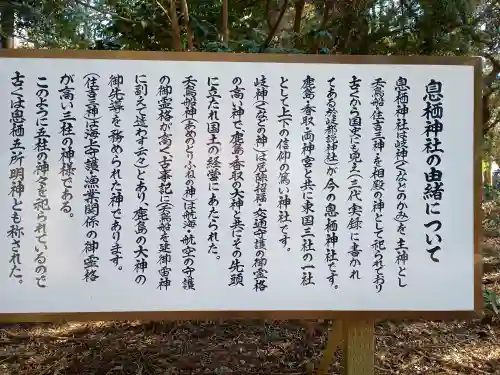 息栖神社の由緒について
息栖神社は岐神(くなどのかみ)を主神とし
天鳥船、住吉三神を相殿の神として祀られており
古くから国史にも見え(三代実録に書かれ
てある於岐都説神社)が今の息栖神社です。
鹿島・香取両神宮と共に東国三社の一社
として上下の信仰の篤い神社です。
岐神(くなどの神)は厄除招福・交通守護の御霊格
の高い神で鹿島・香取の大神と共にその先頭
に立たれ国土の経営にあたられた。
天鳥船神(あめのとりふねの神)は航海・航空の守護
の御霊格が高く(古事記に(天鳥船を建御雷神
に副えて遣わす云々)とあり、鹿島の大神の
御先導を務められた神であります。
(住吉三神)は海上守護・漁業関係の御霊格
が高い三社の神様である。
このように五社の神々も祀られているので
古くは息栖五所明神とも称された。